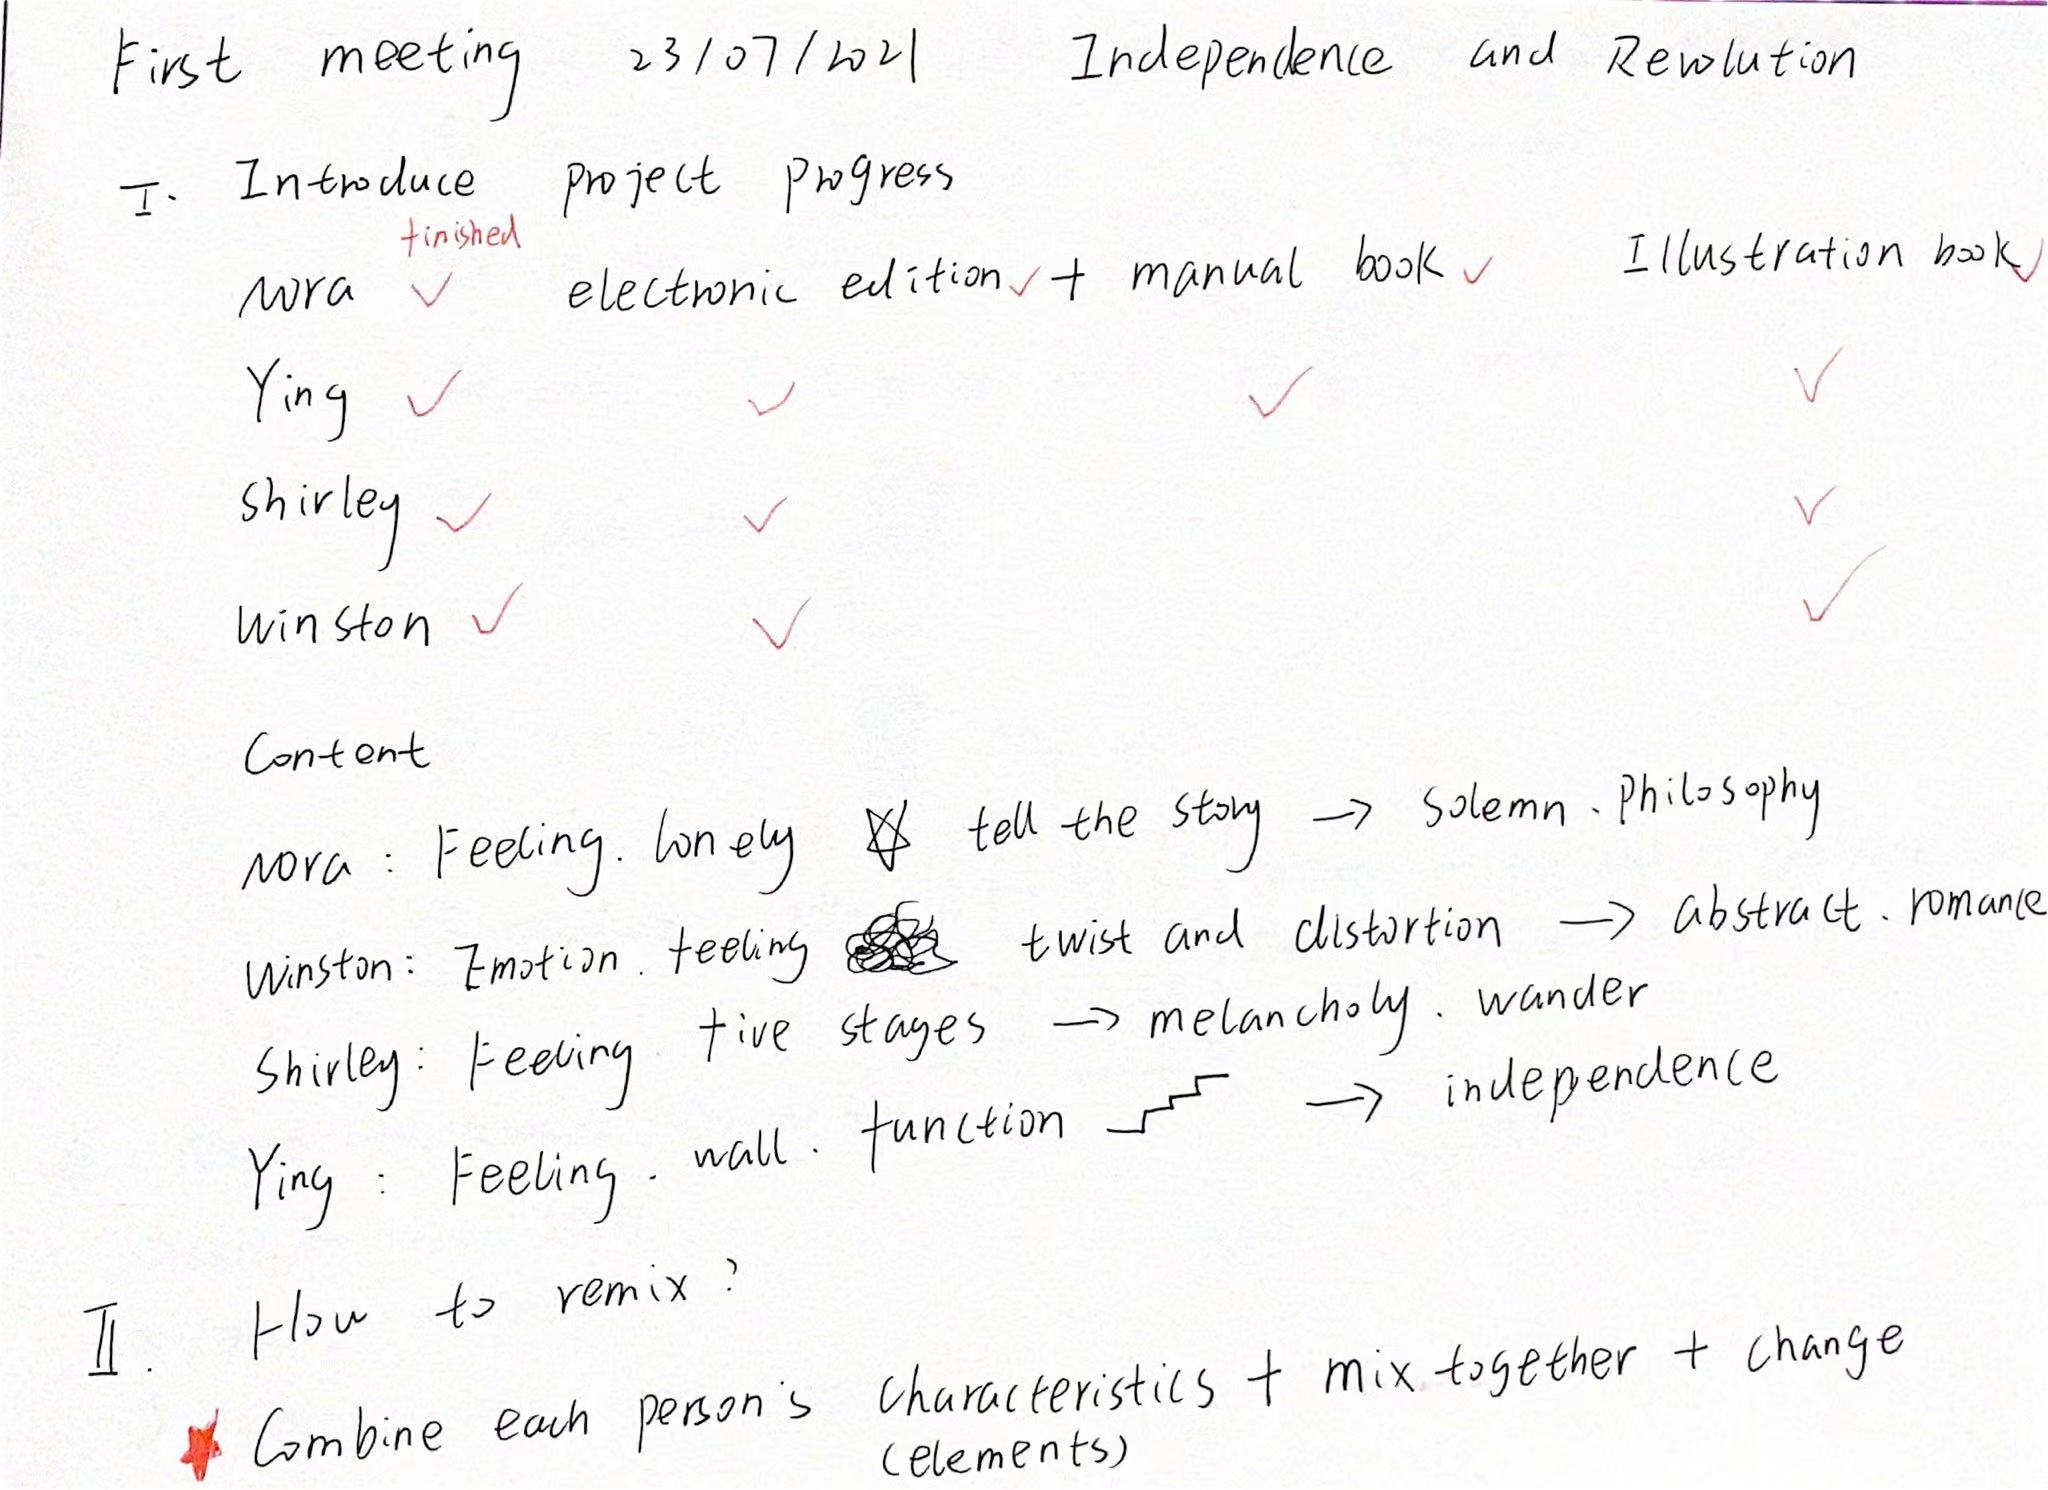 First meeting 23/07/2021 Independence and Revolution
I. Introduce project progress
finished
Nora ✓ electronic edition ✓ + manual book ✓ Illustration book ✓
Ying ✓ ✓ ✓ ✓
Shirley ✓ ✓ ✓
Winston ✓ ✓ ✓
Content
Nora : Feeling. lonely ☆ tell the story → Solemn. Philosophy
Winston: Emotion. feeling twist and distortion → abstract. romance
Shirley: Feeling. five stages → melancholy. wander
Ying : Feeling. wall. function → independence
II. How to remix?
★ Combine each person's characteristics + mix together + change
(elements)